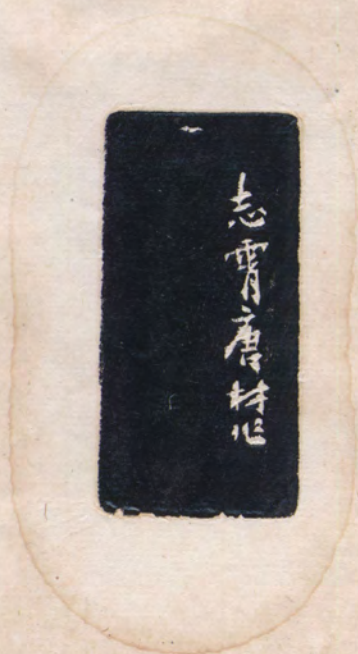 志霄唐材作